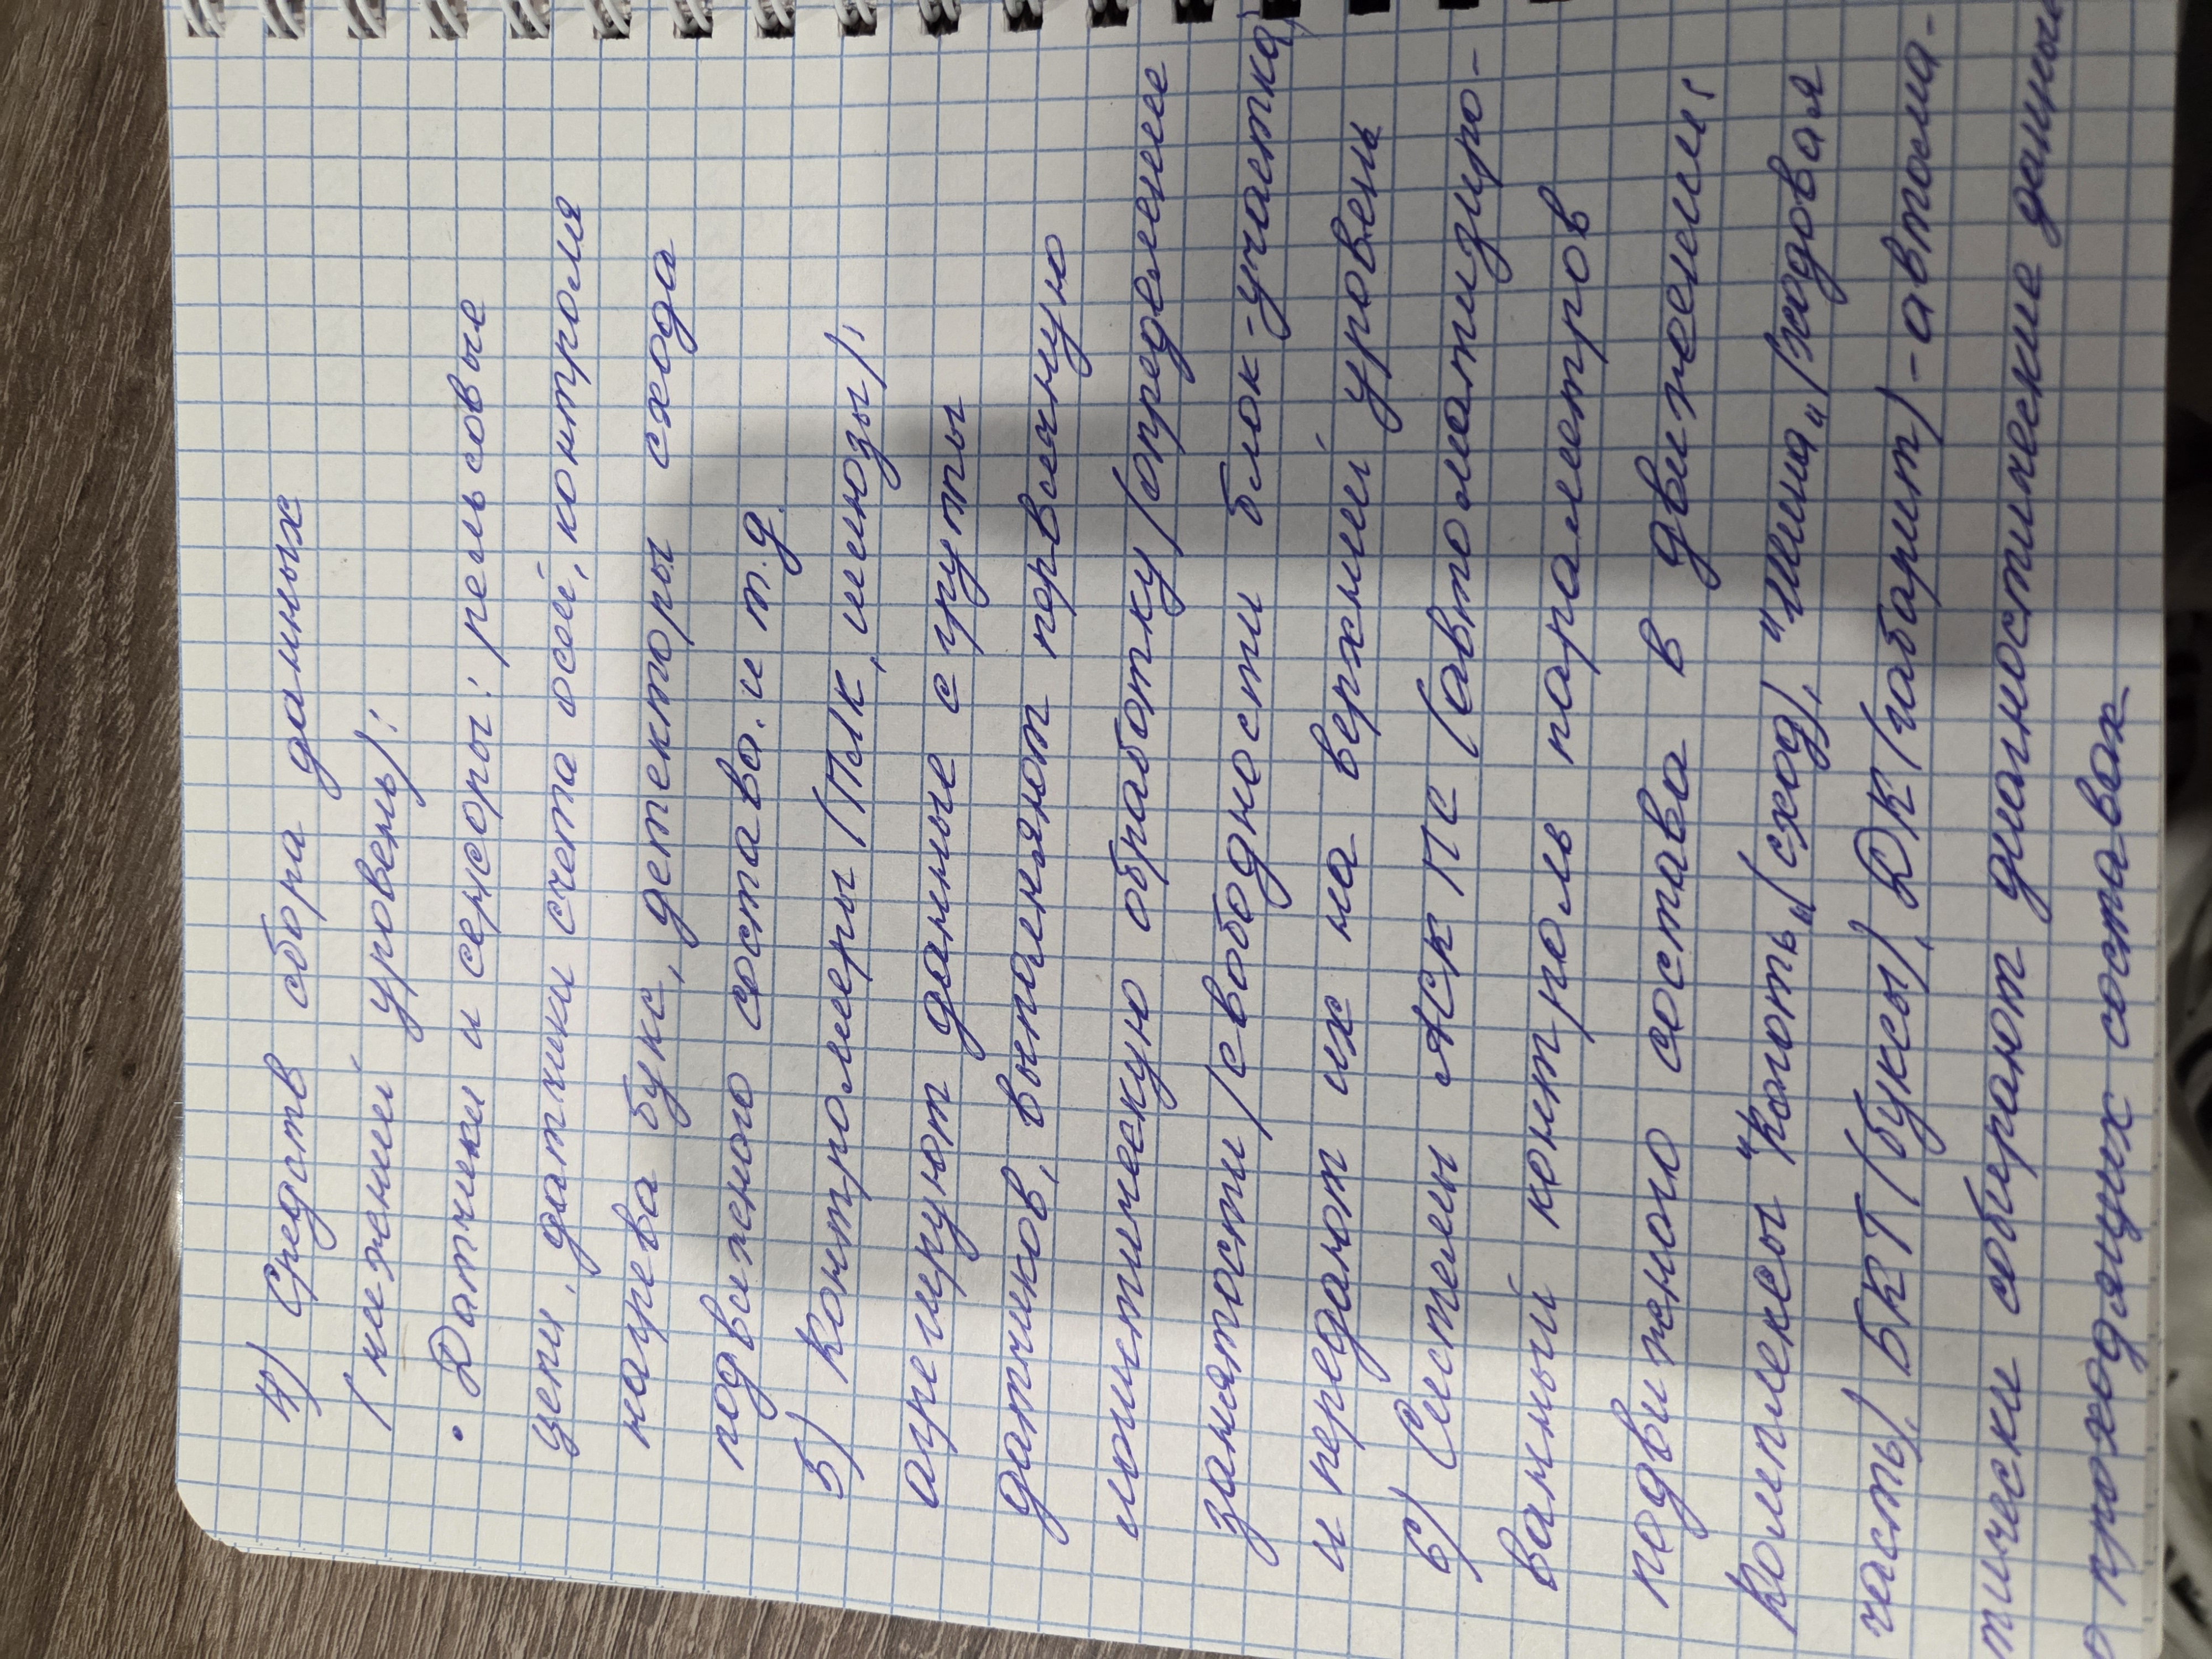 4) Средств сбора данных
(нижений уровень):
• Датчики и сенсоры: рельсовые
цепи, датчики счета осей, контроля
нагрева букс, детекторы схода
подвижного состава. и т.д.
5) Контроллеры (ПЛК, шлюзы):
агрегируют данные с группы
датчиков, выполняют первичную
логистическую обработку (определение
занятости/свободности блок-участка)
и передают их на верхний уровень
6) Системы АСК ПС (автоматизиро-
ванный контроль параметров
подвиженого состава в движении:
Комплексы "Коготь" (сход), "Шина" (ходовая
часть), БКТ (буксы), ДК (габарит) - автома-
тически собирают диагностические данные
о проходящих составах